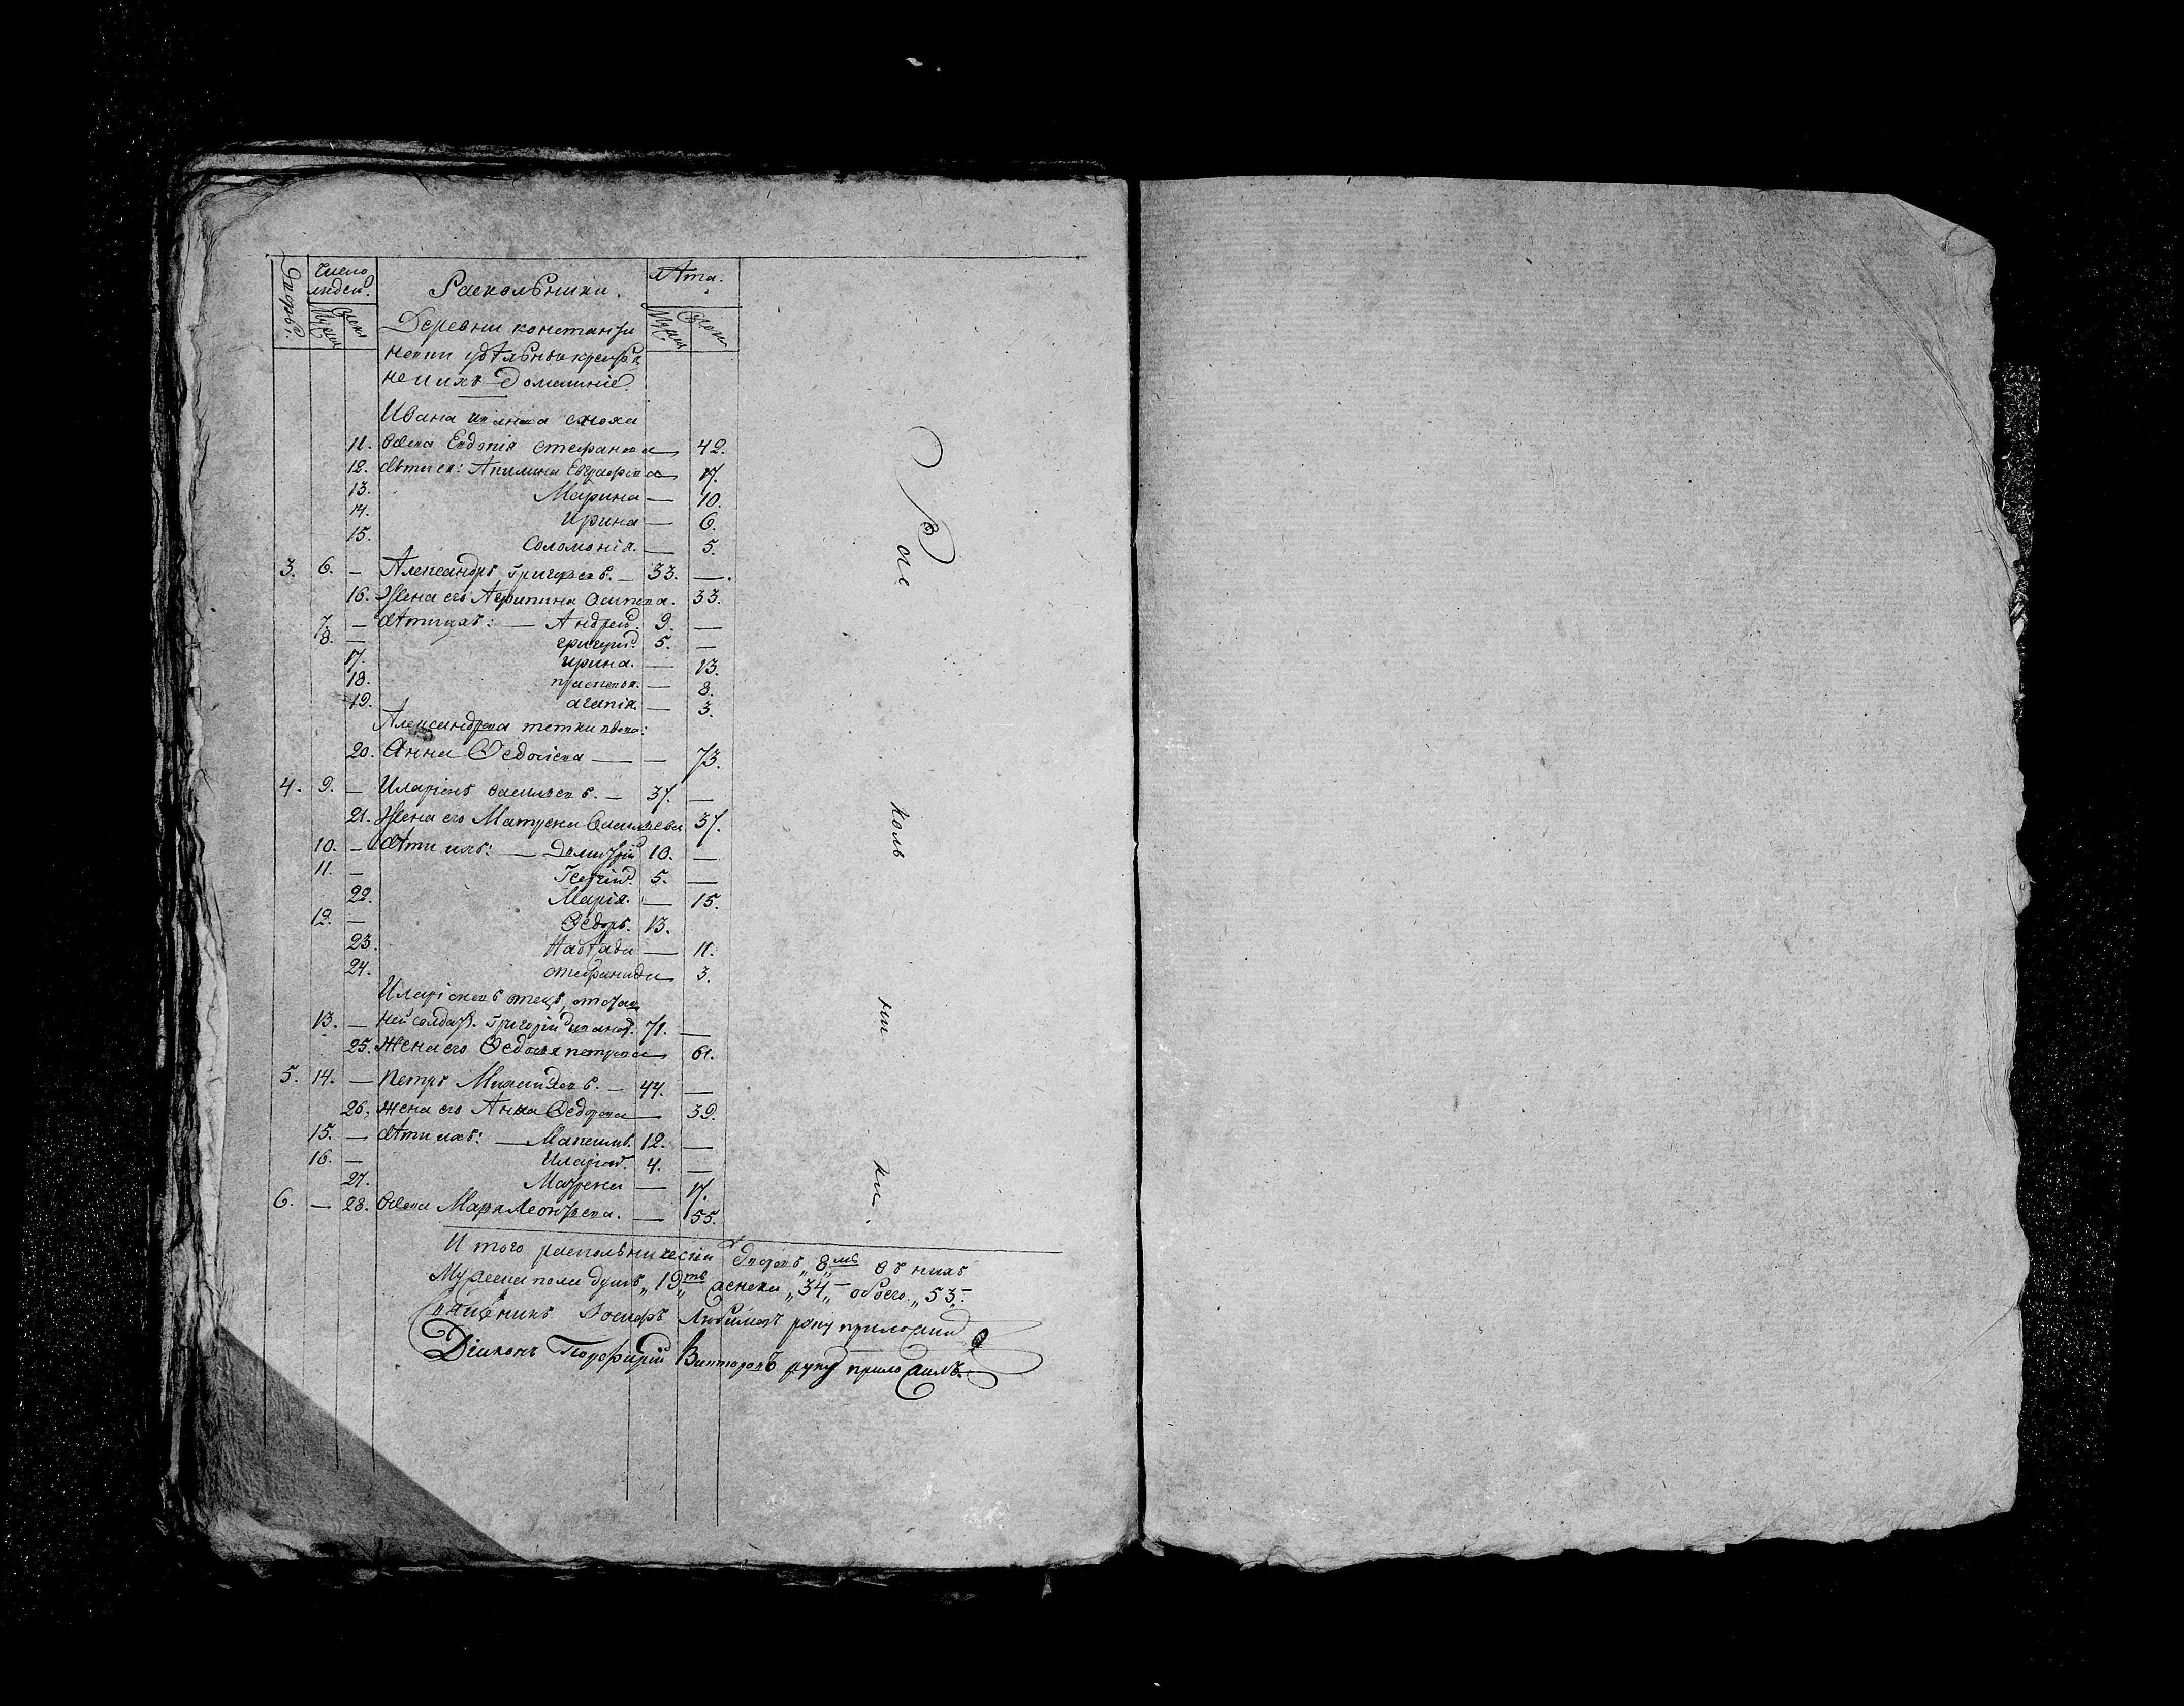 Дворовъ.
Число людей.
Раскольники.
Лѣта.
Муж. Жен.
Муж. Жен.
Деревни константи
новки удѣльныя крестья
не и ихъ домашніе
Ивана сноха
11. вдова Евдокія Стефанова — 42.
12. дѣти ея: Акилина Евграфова — 17.
13. Марина — 10.
14. Ирина — 6.
15. Соломонія. — 5.
3. 6. — Александръ Григорьевъ. — 33. —.
16. Жена его Агрипина Осипова. 33.
7. — дѣти ихъ: — Андрей. 9. —
8. — григорій. 5. —
17. ирина. — 13.
18. прасковья. — 8.
19. агапія. — 3.
Александрова тетка вдова:
20. Анна Ѳедотова — — 73.
4. 9. — Иларіонъ васильевъ. — 37. —
21. Жена его Матрена Васильева 37.
10. — дѣти ихъ: — Димитрій 10. —
11. — Георгій. 5. —
22. Марія. — 15.
12. — Ѳедоръ. 13.
23. Надежда — 11.
24. стефанида 3.
Иларіоновъ отецъ, отстав
13. — ной солдатъ Григорій ивановъ. 71. —
25. Жена его Ѳедосья петрова 61.
5. 14. — Петръ Михайловъ. — 44. —
26. жена его Анна Ѳедорова — 39.
15. — дѣти ихъ: — Максимъ. 12. —
16. — Иларіон. 4. —
27. Матрена — 17.
6. — 28. Вдова Марья Леонтьева. — 55.
И того раскольнически дворовъ „8„мь въ нихъ
Мужеска пола душъ „19„ть женска „34„ обоего „53„.
Священникъ Іосифъ Любимовъ руку приложилъ
Діаконъ Порфирій Викторовъ руку приложилъ.
Рас
коль
ни
ки.